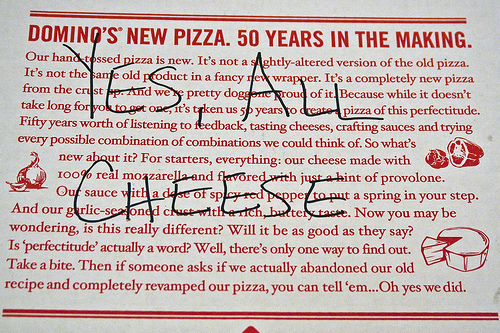 DOMINO'S® NEW PIZZA. 50 YEARS IN THE MAKING.
Our hand-tossed pizza is new. It's not a slightly-altered version of the old pizza.
It's not the same old product in a fancy new wrapper. It's a completely new pizza
from the crust up. And we're pretty doggone proud of it. Because while it doesn't
take long for you to get one, it's taken us 50 years to create a pizza of this perfectitude.
Fifty years worth of listening to feedback, tasting cheeses, crafting sauces and trying
every possible combination of combinations we could think of. So what's
new about it? For starters, everything: our cheese made with
100% real mozzarella and flavored with just a hint of provolone.
Our sauce with a dose of spicy red pepper to put a spring in your step.
And our garlic-seasoned crust with a rich, buttery taste. Now you may be
wondering, is this really different? Will it be as good as they say?
Is 'perfectitude' actually a word? Well, there's only one way to find out.
Take a bite. Then if someone asks if we actually abandoned our old
recipe and completely revamped our pizza, you can tell 'em...Oh yes we did.
YES, ALL
CHEESE